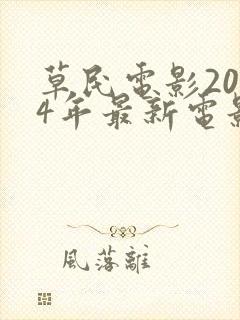 草民電影20
4年最新電影
風落離